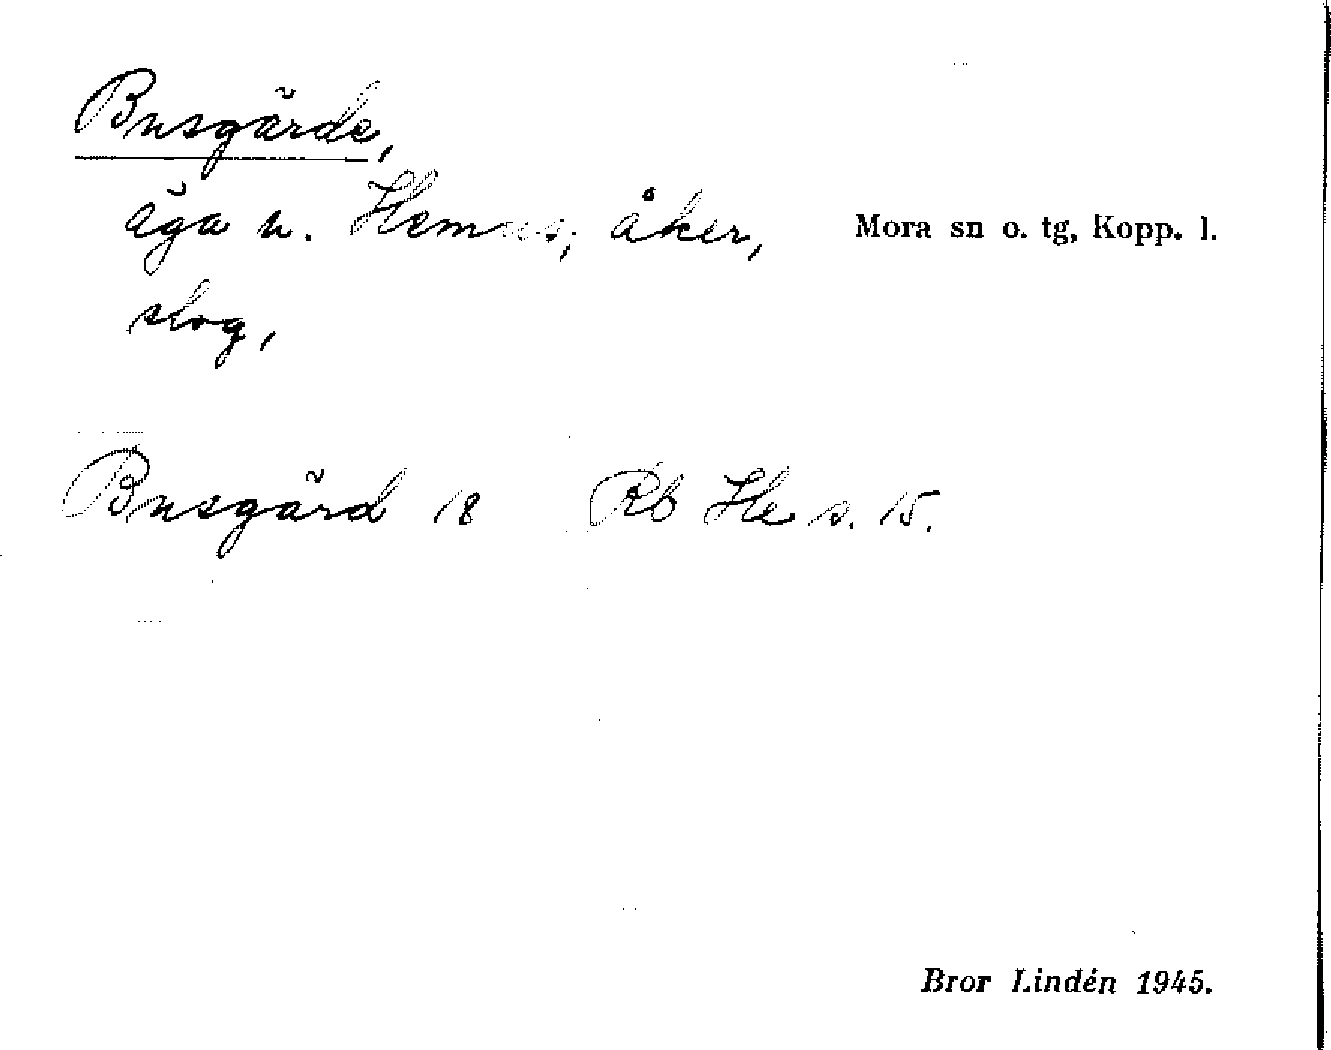 Busgärde,
äga u. Hemus; åker,
Mora sn o. tg, Kopp. l.
slog,
Busgärd 18 Rb He s. 15.
Bror Lindén 1945.